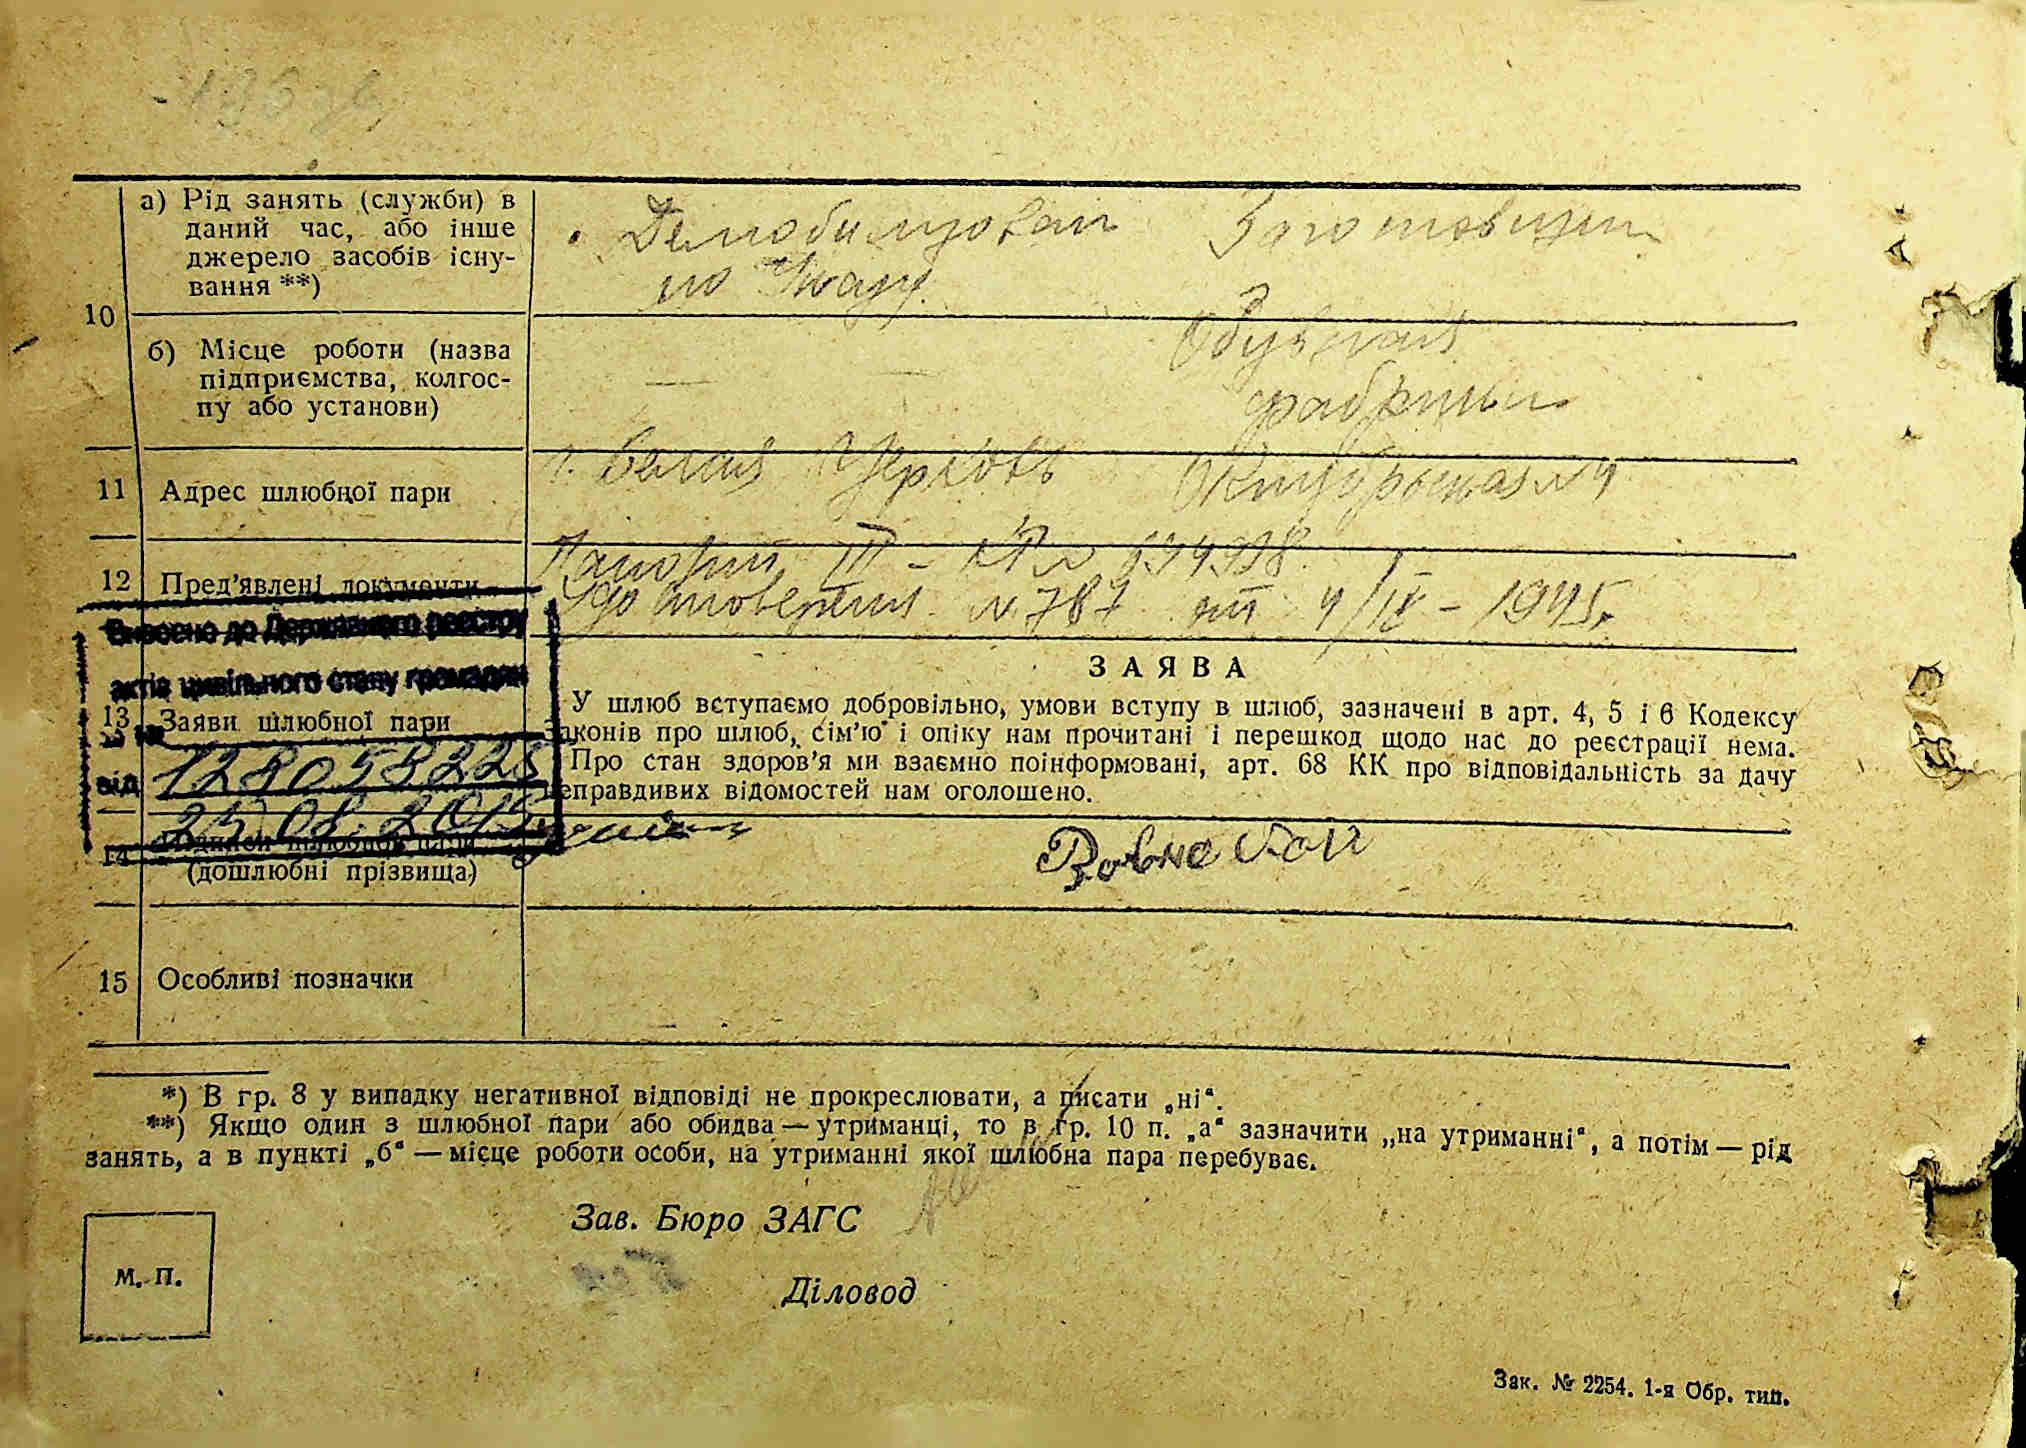 а) Рід занять (служби) в
даний час, або інше
джерело засобів існу-
вання **)
Демобилизован Заготовщик
по Указу
10
б) Місце роботи (назва
підприємства, колгос-
пу або установи)
— —
Обувная
фабрика
11 Адрес шлюбної пари
г. Белая Церковь Октябрьская № 4
12 Пред'явлені документи
Паспорт III –
Удостоверения № 787 от 4/IX – 1945г.
Внесено до Державного реєстру
актів цивільного стану громадян
13 Заяви шлюбної пари
за №
128058225
від
25.08.2015
ЗАЯВА
У шлюб вступаємо добровільно, умови вступу в шлюб, зазначені в арт. 4, 5 і 6 Кодексу
законів про шлюб, сім'ю і опіку нам прочитані і перешкод щодо нас до реєстрації нема.
Про стан здоров'я ми взаємно поінформовані, арт. 68 КК про відповідальність за дачу
неправдивих відомостей нам оголошено.
14
(дошлюбні прізвища)
15 Особливі позначки
*) В гр. 8 у випадку негативної відповіді не прокреслювати, а писати „ні“.
**) Якщо один з шлюбної пари або обидва — утриманці, то в гр. 10 п. „а“ зазначити „на утриманні“, а потім — рід
занять, а в пункті „б“ — місце роботи особи, на утриманні якої шлюбна пара перебуває.
Зав. Бюро ЗАГС
М. П.
Діловод
Зак. № 2254. 1-я Обр. тип.